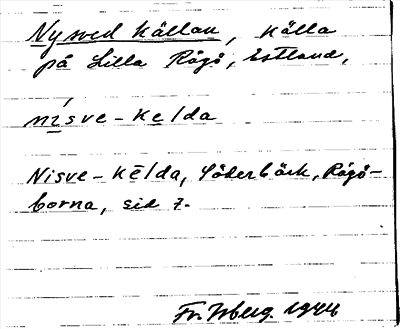 Nysved källan, källa
på Lilla Rågö, Estland,
nísve-kelda
Nisve-kēlda, Söderbäck, Rågö-
borna, sid 7.
Fr. Isberg. 1944